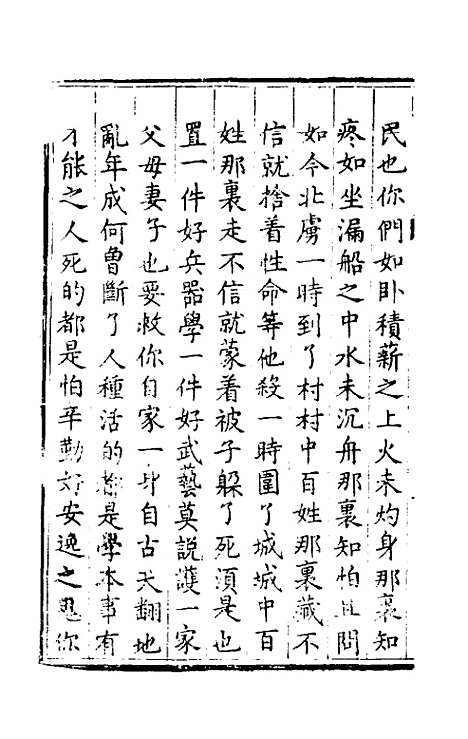 民也你們如卧積薪之上火未灼身那裏知
疼如坐漏船之中水未沉舟那裏知怕且問
如今北虜一時到了村村中百姓那裏藏不
信就捨着性命等他殺一時圍了城城中百
姓那裏走不信就蒙着被子躲了死須是也
置一件好兵器學一件好武藝莫說護一家
父母妻子也要救你自家一身自古天翻地
亂年成何曾斷了人種活的都是學本事有
才能之人死的都是怕辛勤好安逸之鬼你